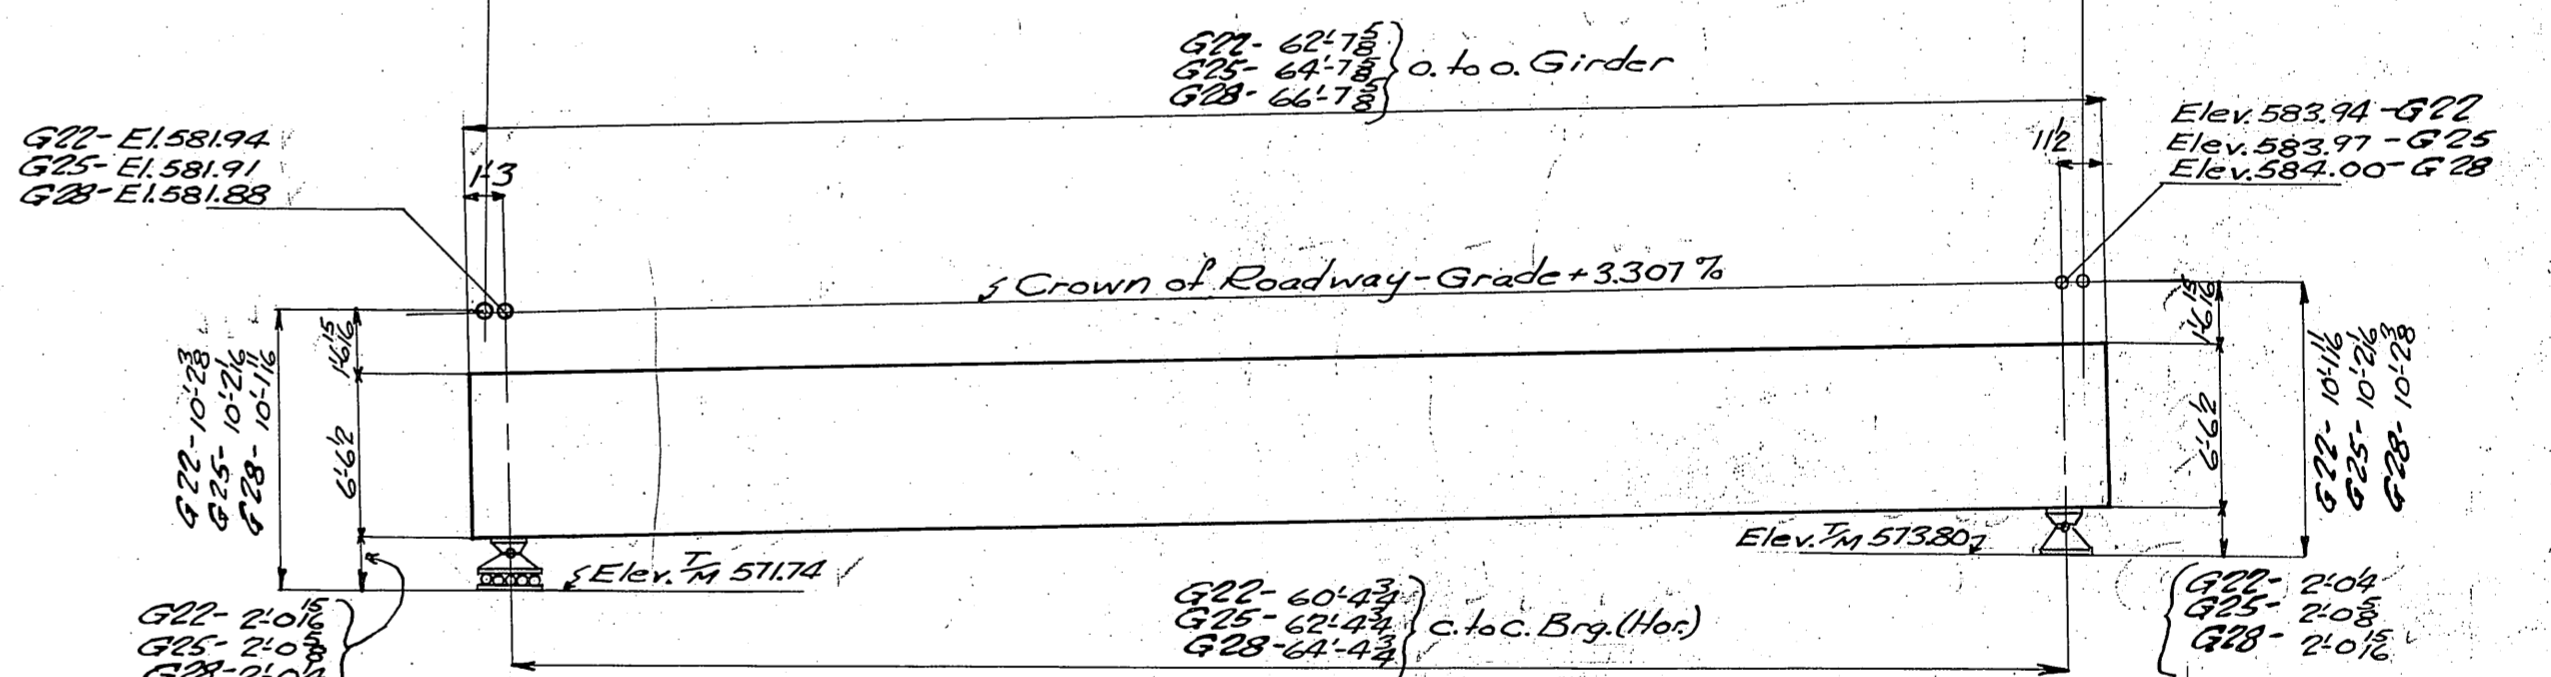 G22- 62'-7 5/8
G25- 64'-7 5/8
G28- 66'-7 5/8
o. to o. Girder
G22- El. 581.94
G25- El. 581.91
G28- El. 581.88
1'-3
11 1/2
Elev. 583.94 - G22
Elev. 583.97 - G25
Elev. 584.00 - G28
Crown of Roadway - Grade + 3.307 %
G22- 10'-2 3/8
G25- 10'-2 1/16
G28- 10'-1 11/16
1'-6 15/16
6'-6 1/2
1'-6 15/16
6'-6 1/2
G22- 10'-1 11/16
G25- 10'-2 1/16
G28- 10'-2 3/8
Elev. T/M 571.74
Elev. T/M 573.80
G22- 2'-0 15/16
G25- 2'-0 5/8
G28- 2'-0 1/4
G22- 60'-4 3/4
G25- 62'-4 3/4
G28- 64'-4 3/4
c. to c. Brg. (Hor.)
G22- 2'-0 1/4
G25- 2'-0 5/8
G28- 2'-0 15/16